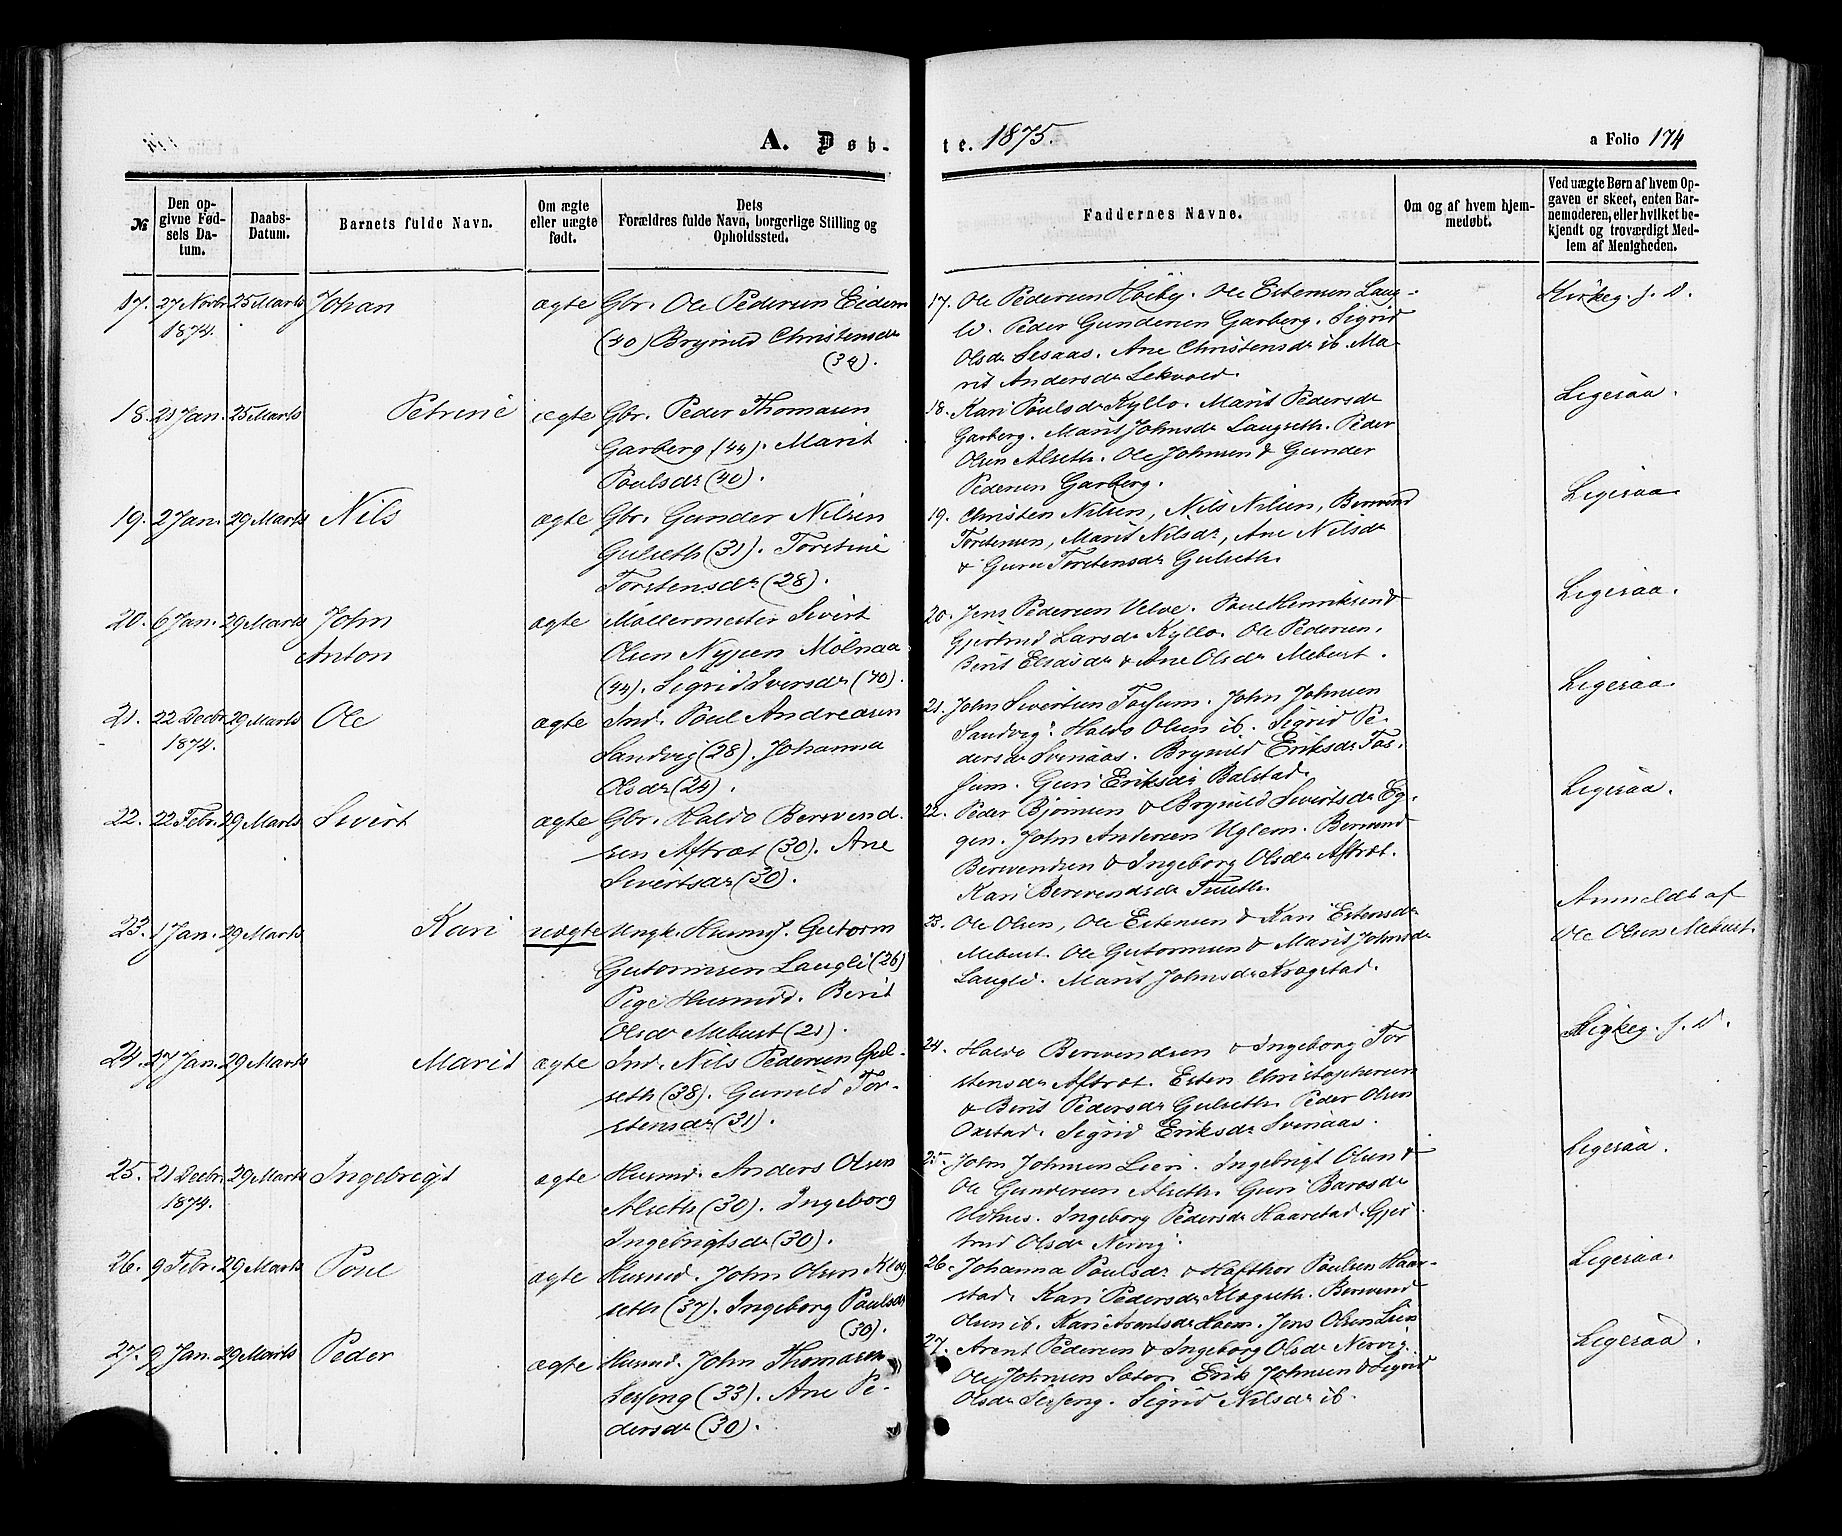 A. Døb-
te. 1875.
a Folio 174
№
Den op-
givne Fød-
sels Da-
tum.
Daabs-
Datum.
Barnets fulde Navn.
Om ægte
eller uægte
født.
Dets
Forældres fulde Navn, borgerlige Stilling og
Opholdssted.
Faddernes Navne.
Om og af hvem hjem-
medøbt.
Ved uægte Børn af hvem Op-
gaven er skeet, enten Bar-
nemoderen, eller hvilket be-
kjendt og troværdigt Med-
lem af Menigheden.
17. 27 Novbr 25 Marts Johan ægte Gbr. Ole Pedersen Eidem
1874. (40) Brynild Christensdr
(34).
17. Ole Pedersen Høiby. Ole Estensen Laug-
li. Peder Gundersen Garberg. Sigrid
Olsdr Sesaas. Ane Christensdr ib. Ma-
rit Andersdr Lekvold.
Kirkeg. s. D.
18. 21 Jan. 25 Marts Petrine ægte Gbr. Peder Thomasen
Garberg (44). Marit
Poulsdr (40).
18. Kari Poulsdr Kyllo. Marit Pedersdr
Garberg. Marit Johnsdr Laugseth. Peder
Olsen Alseth. Ole Johnsen & Gunder
Pedersen Garberg.
Ligesaa.
19. 2 Jan. 29 Marts Nils ægte Gbr. Gunder Nilsen
Gulseth (31). Torstine
Torstensdr (28).
19. Christen Nilsen, Nils Nilsen, Berwend
Torstensen, Marit Nilsdr, Ane Nilsdr
& Guru Torstensdr Gulseth.
Ligesaa.
20. 6 Jan. 29 Marts John ægte Møllermester Sivert
Anton Olsen Nypen Mølnaa
(44). Sigrid Iversdr (40).
20. Jens Pedersen Velve. Poul Henriksen &
Gjertrud Larsdr Kyllo. Ole Pedersen,
Berit Eliasdr & Ane Olsdr Mebust.
Ligesaa.
21. 22 Decbr 29 Marts Ole ægte Ind. Poul Andreasen
1874. Sandvig (28). Johanna
Olsdr (24).
21. John Sivertsen Fossum. John Johnsen
Sandvig. Haldo Olsen ib. Sigrid Pe-
dersdr Svinaas. Brynild Eriksdr Fos-
sum. Guri Eriksdr Balstad.
Ligesaa.
22. 22 Febr. 29 Marts Sivert ægte Gbr. Haldo Berwend-
sen Aftret (30). Ane
Sivertsdr (30).
22. Peder Bjørnsen & Brynild Sivertsdr Eg-
gen. John Andersen Uglem. Berwend
Berwendsen & Ingeborg Olsdr Aftret.
Kari Berwendsdr Tuseth.
Ligesaa.
23. 1 Jan. 29 Marts Kari uægte Ungk. Husmsf. Gutorm
Gutormsen Laugli (26)
Pige Husmdd. Berit
Olsdr Mebust (21).
23. Ole Olsen, Ole Estensen & Kari Estensdr
Mebust. Ole Gutormsen & Marit Johnsdr
Laugli. Marit Johnsdr Kragstad.
Anmeldt af
Ole Olsen Mebust.
24. 17 Jan. 29 Marts Marit ægte Ind. Nils Pedersen Gul-
seth (38). Gunild Tor-
stensdr (31).
24. Haldo Berwendsen & Ingeborg Tor-
stensdr Aftret. Esten Christophersen
& Berit Pedersdr Gulseth. Peder Olsen
Oxstad. Sigrid Eriksdr Svinaas.
Kirkeg. s. D.
25. 21 Decbr. 29 Marts Ingebrigt ægte Husmd. Anders Olsen
1874. Alseth (30). Ingeborg
Ingebrigtsdr (30).
25. John Johnsen Lien. Ingebrigt Olsen &
Ole Gundersen Alseth. Guri Baresdr
Udhus. Ingeborg Pedersdr Haarstad. Gjer-
trud Olsdr Nervig.
Ligesaa.
26. 9 Febr. 29 Marts Poul ægte Husmd. John Olsen Klog-
seth (37). Ingeborg Poulsdr
(30).
26. Johanna Poulsdr & Hafthor Poulsen Haar-
stad. Kari Pedersdr Klogseth. Berwend
Olsen ib. Kari Arntsdr Moem. Jens Olsen Lien
Ligesaa.
27. 9 Jan. 29 Marts Peder ægte Husmd. John Thomasen
Sesseng (33). Ane Pe-
dersdr (30).
27. Arent Pedersen & Ingeborg Olsdr Nervig.
Ole Johnsen Sæter. Erik Johnsen & Sigrid
Olsdr Sesseng. Sigrid Nilsdr ib.
Ligesaa.